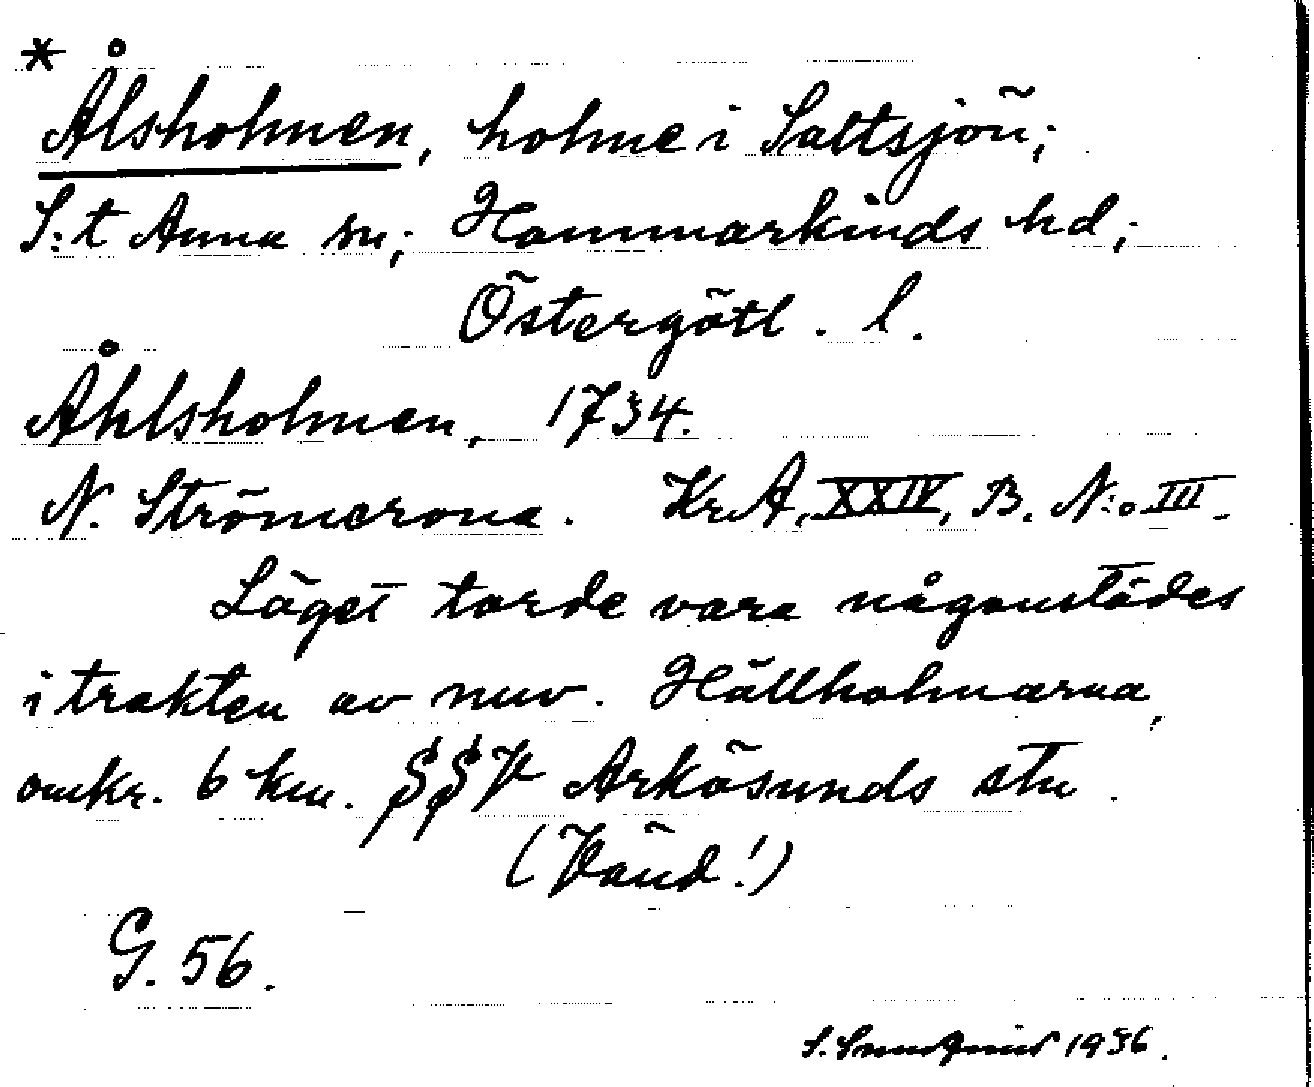 * Ålsholmen, holme i Saltsjön;
S:t Anna sn; Hammarkinds hd;
Östergötl. l.
Åhlsholmen, 1734.
N. Strömcrona. Kr.A, XXIV, B. N:o III.
Läget torde vara någonstädes
i trakten av nuv. Hällholmarna,
omkr. 6 km. SSV Arkösunds stn.
(Vänd!)
G. 56.
S. 1936.